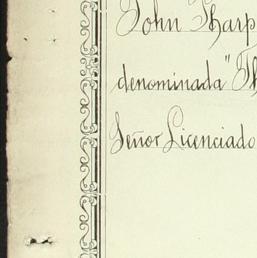 John Tharp
denominada "Th
Señor Licenciado